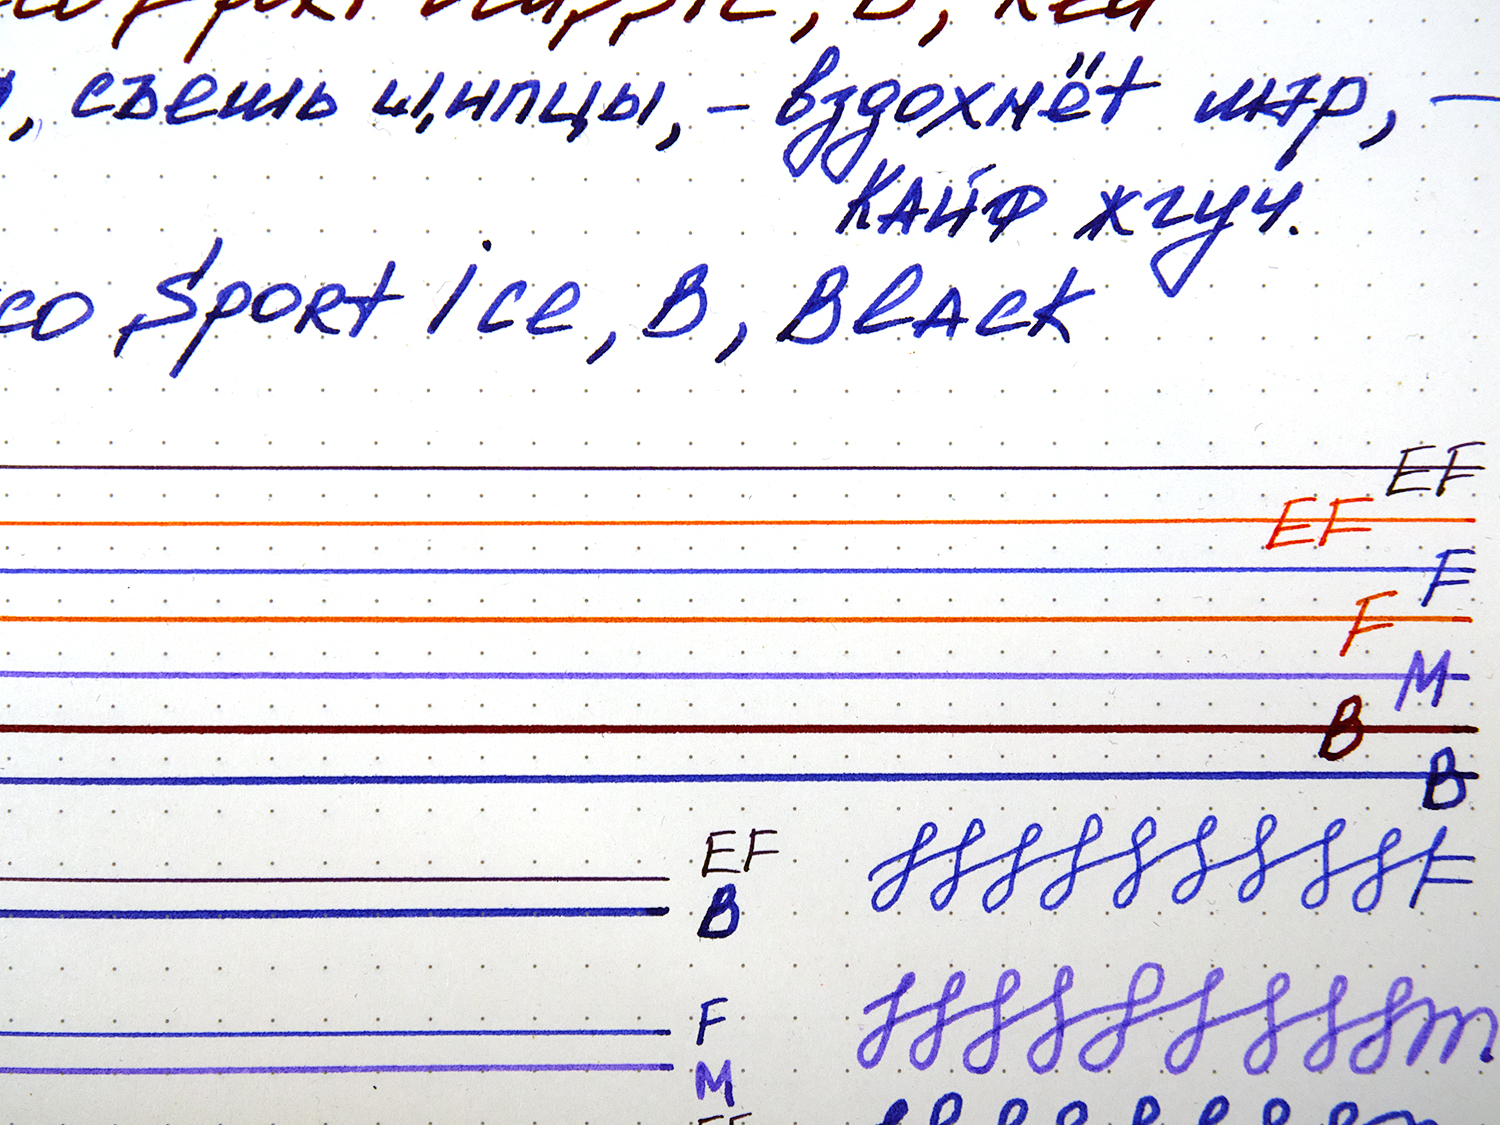 B, Red
, съешь щипцы, – вздохнёт мэр, –
кайф жгуч.
co Sport ice, B, Black
EF
EF
F
F
M
B
B
EF
B
F
F
M
m
EF